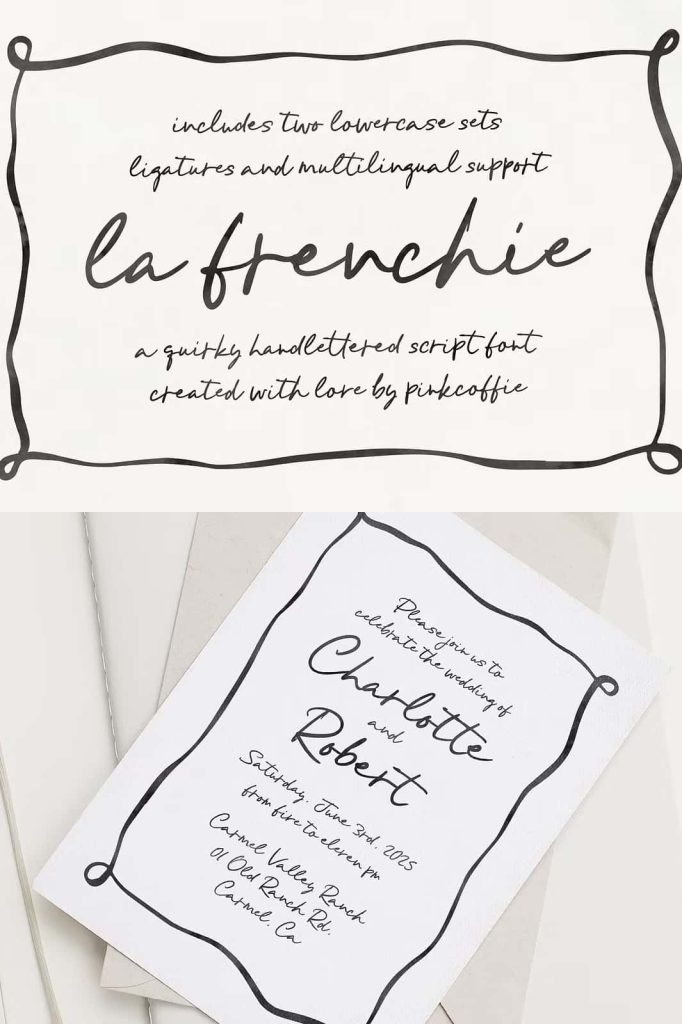 includes two lowercase sets
ligatures and multilingual support
la frenchie
a quirky handlettered script font
created with love by pinkcoffie
Please join us to
celebrate the wedding of
Charlotte
and
Robert
Saturday, June 3rd, 2025
from five to eleven pm
Carmel Valley Ranch
01 Old Ranch Rd.
Carmel, Ca